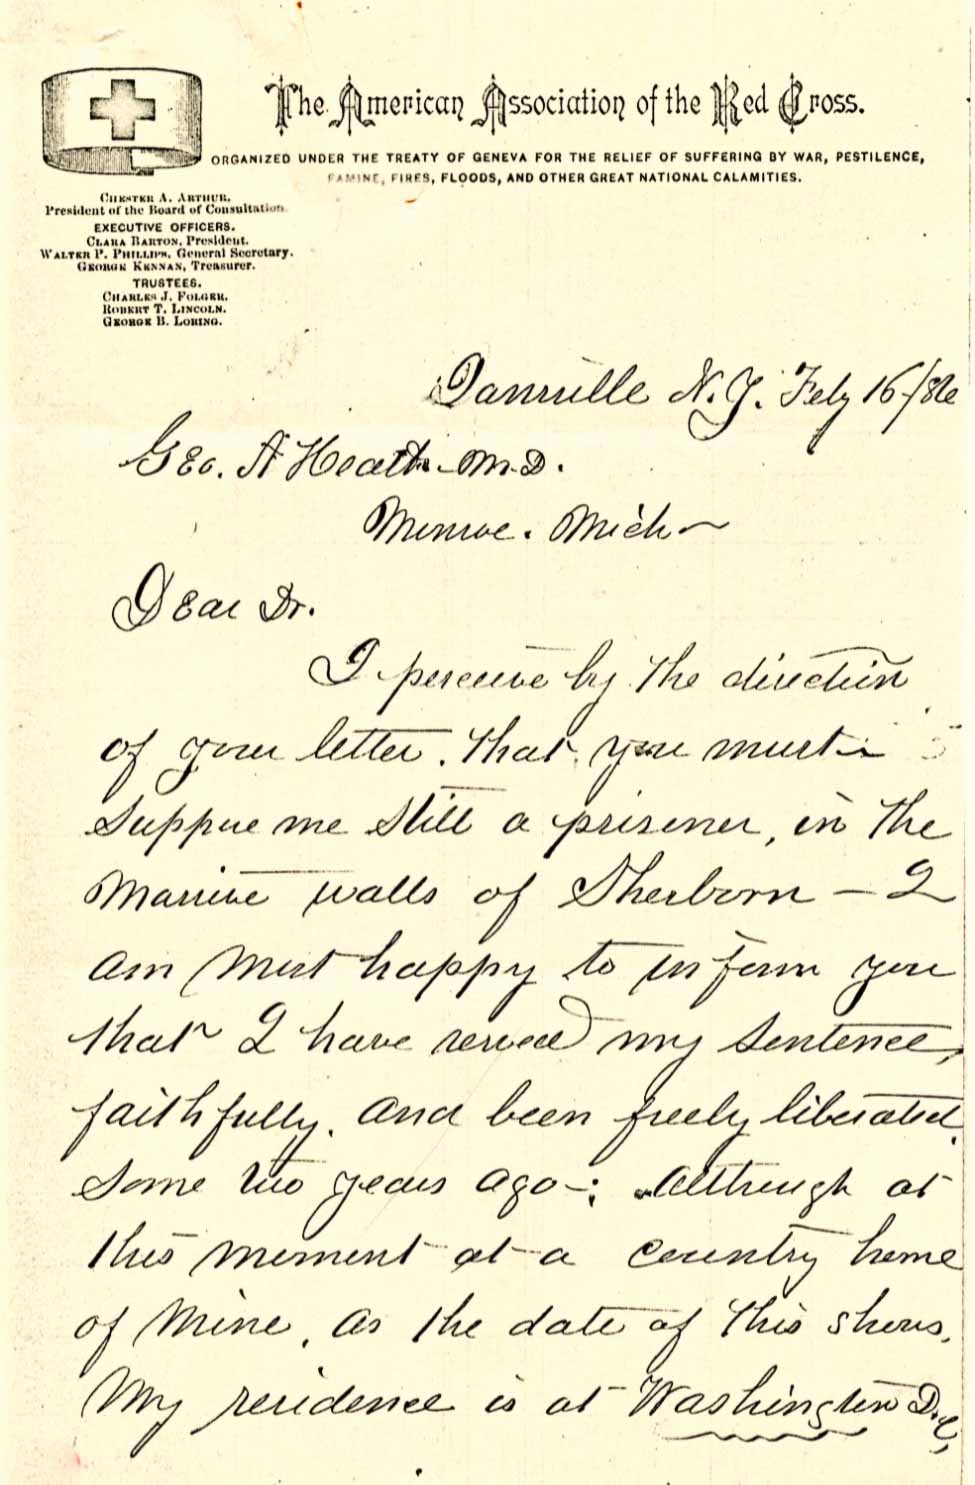 The American Association of the Red Cross.
ORGANIZED UNDER THE TREATY OF GENEVA FOR THE RELIEF OF SUFFERING BY WAR, PESTILENCE,
FAMINE, FIRES, FLOODS, AND OTHER GREAT NATIONAL CALAMITIES.
CHESTER A. ARTHUR,
President of the Board of Consultation.
EXECUTIVE OFFICERS.
CLARA BARTON, President.
WALTER P. PHILLIPS, General Secretary.
GEORGE KENNAN, Treasurer.
TRUSTEES.
CHARLES J. FOLGER.
ROBERT T. LINCOLN.
GEORGE B. LORING.
Dansville N.Y. Feby 16/86
Geo. A Heath M.D.
Monroe. Mich
Dear Dr.
I perceive by the direction
of your letter, that you must
suppose me still a prisoner, in the
Massive walls of Sherborn - I
am most happy to inform you
that I have served my sentence,
faithfully, and been freely liberated,
some two years ago -; although at
this moment at a country home
of mine, as the date of this shows,
My residence is at Washington D.C,